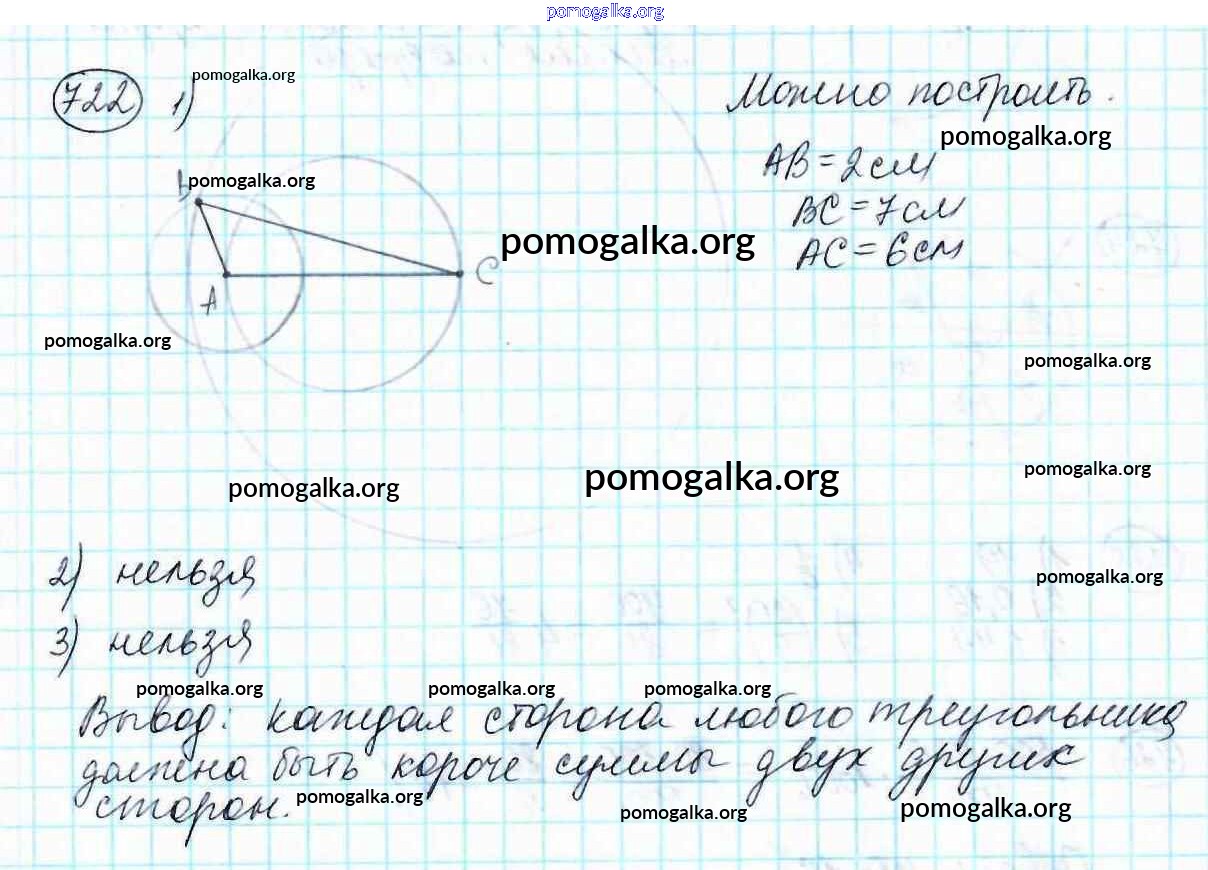 pomogalka.org
722 1) pomogalka.org
Можно построить.
pomogalka.org
AB = 2 см
B pomogalka.org
BC = 7 см
pomogalka.org
AC = 6 см
C
A
pomogalka.org
pomogalka.org
pomogalka.org
pomogalka.org
pomogalka.org
2) нельзя
pomogalka.org
3) нельзя
pomogalka.org pomogalka.org pomogalka.org
Вывод: каждая сторона любого треугольника
должна быть короче суммы двух других
сторон. pomogalka.org
pomogalka.org
pomogalka.org